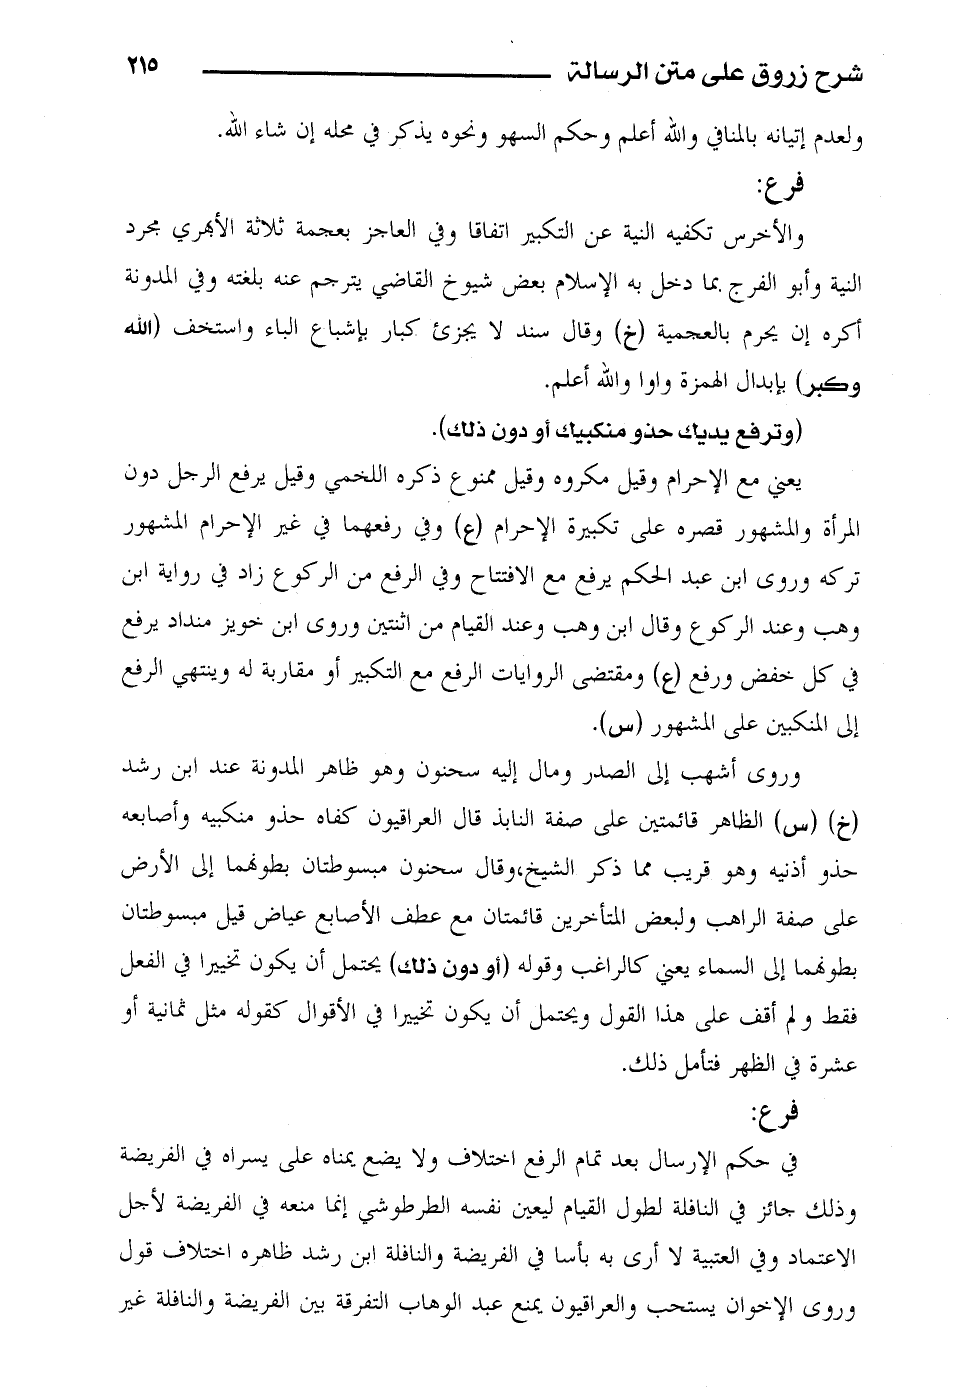 شرح زروق على متن الرسالة ٢١٥
ولعدم إتيانه بالمنافي والله أعلم وحكم السهو ونحوه يذكر في محله إن شاء الله.
فرع:
والأخرس تكفيه النية عن التكبير اتفاقا وفي العاجز بعجمة ثلاثة الأبهري مجرد
النية وأبو الفرج بما دخل به الإسلام بعض شيوخ القاضي يترجم عنه بلغته وفي المدونة
أكره إن يحرم بالعجمية (خ) وقال سند لا يجزئ كبار بإشباع الباء واستخف (الله
وكبر) بإبدال الهمزة واوا والله أعلم.
(وترفع يديك حذو منكبيك أو دون ذلك).
يعني مع الإحرام وقيل مكروه وقيل ممنوع ذكره اللخمي وقيل يرفع الرجل دون
المرأة والمشهور قصره على تكبيرة الإحرام (ع) وفي رفعهما في غير الإحرام المشهور
تركه وروى ابن عبد الحكم يرفع مع الافتتاح وفي الرفع من الركوع زاد في رواية ابن
وهب وعند الركوع وقال ابن وهب وعند القيام من اثنتين وروى ابن خويز منداد يرفع
في كل خفض ورفع (ع) ومقتضى الروايات الرفع مع التكبير أو مقاربة له وينتهي الرفع
إلى المنكبين على المشهور (س).
وروى أشهب إلى الصدر ومال إليه سحنون وهو ظاهر المدونة عند ابن رشد
(خ) (س) الظاهر قائمتين على صفة النابذ قال العراقيون كفاه حذو منكبيه وأصابعه
حذو أذنيه وهو قريب مما ذكر الشيخ،وقال سحنون مبسوطتان بطونهما إلى الأرض
على صفة الراهب ولبعض المتأخرين قائمتان مع عطف الأصابع عياض قيل مبسوطتان
بطونهما إلى السماء يعني كالراغب وقوله (أو دون ذلك) يحتمل أن يكون تخييرا في الفعل
فقط ولم أقف على هذا القول ويحتمل أن يكون تخييرا في الأقوال كقوله مثل ثمانية أو
عشرة في الظهر فتأمل ذلك.
فرع:
في حكم الإرسال بعد تمام الرفع اختلاف ولا يضع يمناه على يسراه في الفريضة
وذلك جائز في النافلة لطول القيام ليعين نفسه الطرطوشي إنما منعه في الفريضة لأجل
الاعتماد وفي العتبية لا أرى به بأسا في الفريضة والنافلة ابن رشد ظاهره اختلاف قول
وروى الإخوان يستحب والعراقيون يمنع عبد الوهاب التفرقة بين الفريضة والنافلة غير